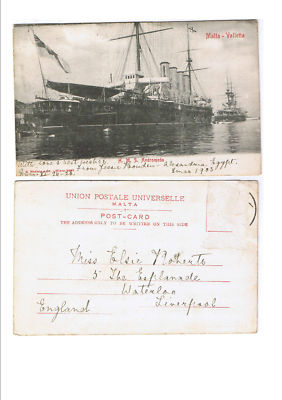 Malta - Valletta
H. M. S. Andromeda
With love & best
From Jessie Alexandria, Egypt.
Since 1903
UNION POSTALE UNIVERSELLE
MALTA
POST-CARD
THE ADDRESS ONLY TO BE WRITTEN ON THIS SIDE
Miss Elsie
5 The Esplanade
Waterloo
Liverpool
England